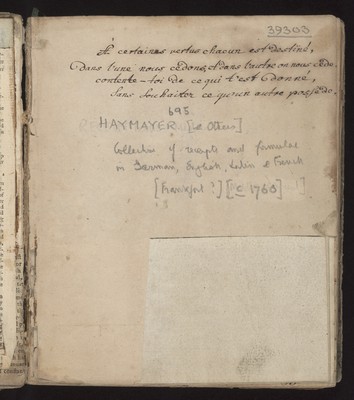 39303
A certaines vertus chacun est destiné,
dans l'une nous cedons, et dans l'autre on nous cede.
contente-toi de ce qui t'est donné,
Sans souhaiter ce qu'un autre possede.
695
HAYMAYER [& Others]
Collection of receipts and formulae
in German, English, Latin & French
[Frankfort?] [c 1760]